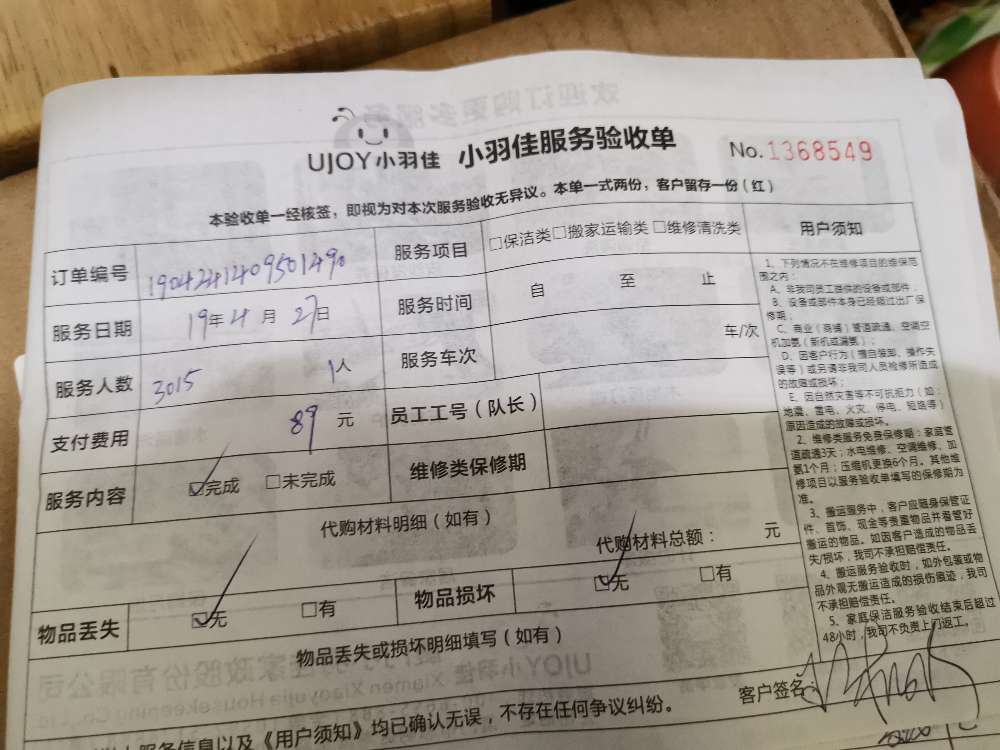 UJOY小羽佳 小羽佳服务验收单 No.1368549
本验收单一经核签，即视为对本次服务验收无异议。本单一式两份，客户留存一份（红）
订单编号 190424140950149 服务项目 □保洁类□搬家运输类□维修清洗类
服务日期 19年4月27日 服务时间 自 至 止
服务人数 3015 1人 服务车次 车/次
支付费用 89 元 员工工号（队长）
服务内容 ☑完成 □未完成 维修类保修期
代购材料明细（如有）
代购材料总额： 元
物品丢失 ☑无 □有 物品损坏 ☑无 □有
物品丢失或损坏明细填写（如有）
客户签名：
服务信息以及《用户须知》均已确认无误，不存在任何争议纠纷。
用户须知
1、下列情况不在维修项目的维保范
围之内：
A、非我司员工提供的设备或部件；
B、设备或部件本身已经超过出厂保
修期；
C、商业（商铺）管道疏通、空调空
机加氨（新机或漏氨）；
D、因客户行为（擅自装卸、操作失
误等）或另请非我司人员检修所造成
的故障或损坏；
E、因自然灾害等不可抗拒力（如：
地震、雷电、火灾、停电、短路等）
原因造成的故障或损坏。
2、维修类服务免费保修期：家庭管
道疏通3天；水电维修、空调维修、加
氨1个月；压缩机更换6个月。其他维
修项目以服务验收单填写的保修期为
准。
3、搬运服务中，客户应随身保管证
件、首饰、现金等贵重物品并看管好
搬运的物品。如因客户造成的物品丢
失/损坏，我司不承担赔偿责任。
4、搬运服务验收时，如外包装或物
品外观无搬运造成的损伤痕迹，我司
不承担赔偿责任。
5、家庭保洁服务验收结束后超过
48小时，我司不负责上门返工。